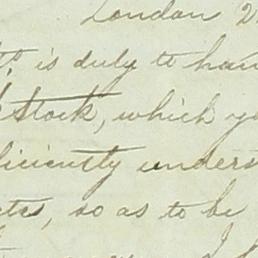 London 2
is duly to han
Stock, which y
liciently unders
cts, so as to be